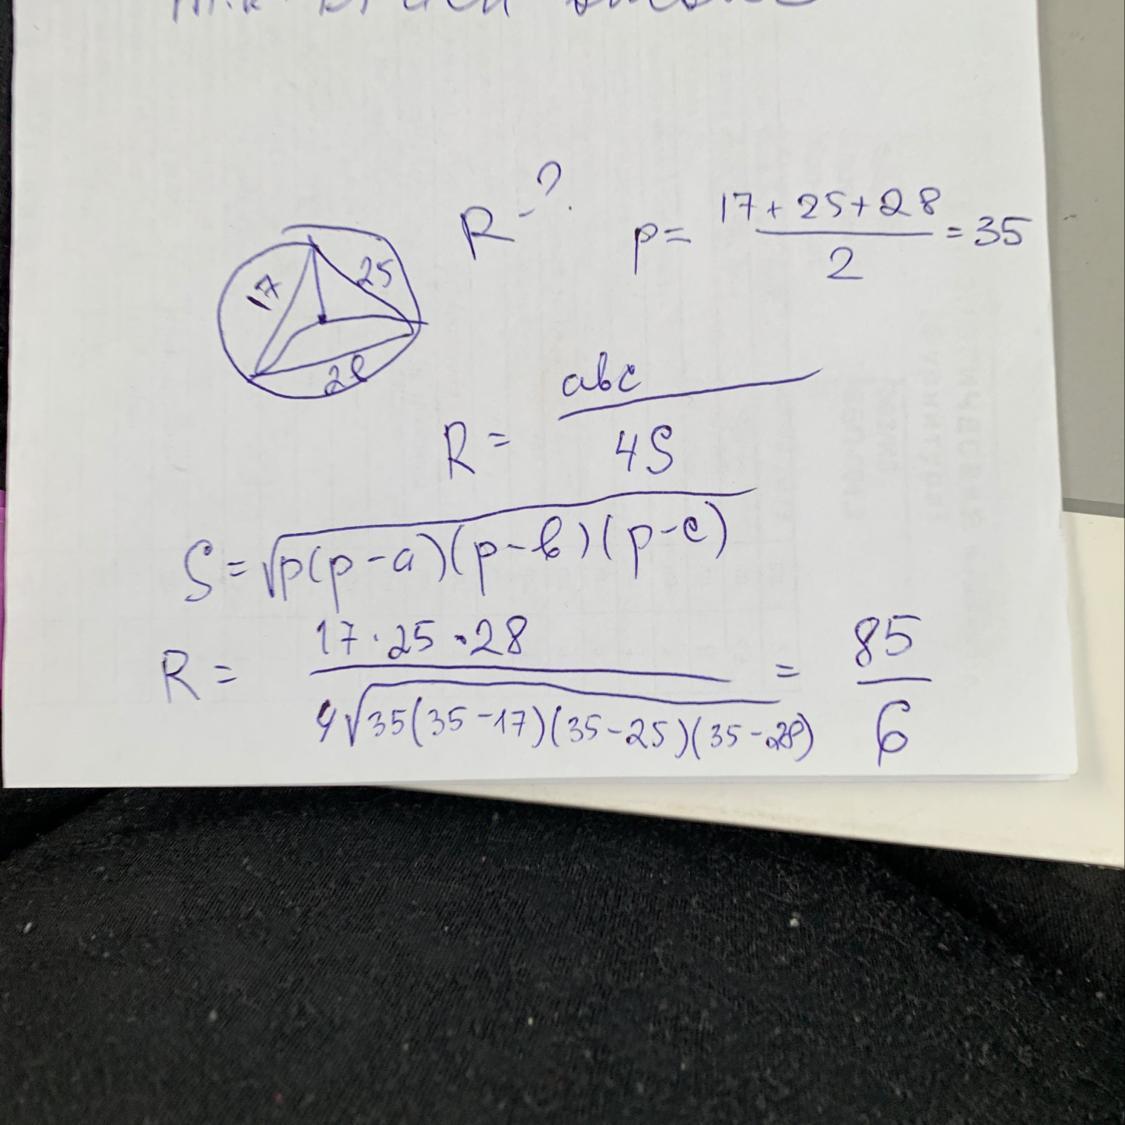 R - ?
p = (17 + 25 + 28) / 2 = 35
17
25
28
R = abc / 4S
S = √(p(p-a)(p-b)(p-c))
R = 17 · 25 · 28 / 4√(35(35-17)(35-25)(35-28)) = 85 / 6